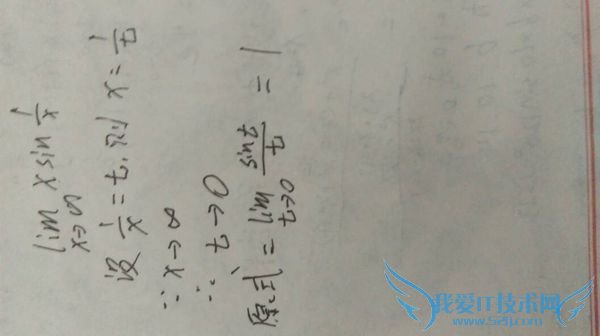 lim x sin 1/x
x→∞
设 1/x = t, 则 x = 1/t
∵ x→∞
∴ t→0
原式 = lim sin t / t = 1
t→0
我爱IT技术网
www.52ij.com